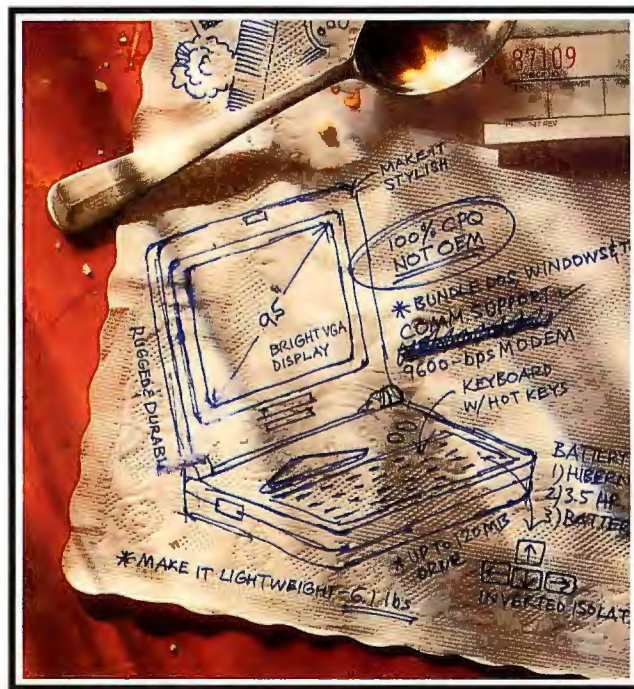 87109
MAKE IT
STYLISH
100% CPQ
NOT OEM
* BUNDLE DOS WINDOWS &
COMM. SUPPORT ✓
9600-bps MODEM
9.5"
BRIGHT VGA
DISPLAY
RUGGED & DURABLE
KEYBOARD
W/HOT KEYS
BATTERY
1) HIBERN
2) 3.5 HR
3) BATTER
* UP TO 120MB
DRIVE
* MAKE IT LIGHTWEIGHT-6.1 lbs
INVERTED ISOLAT